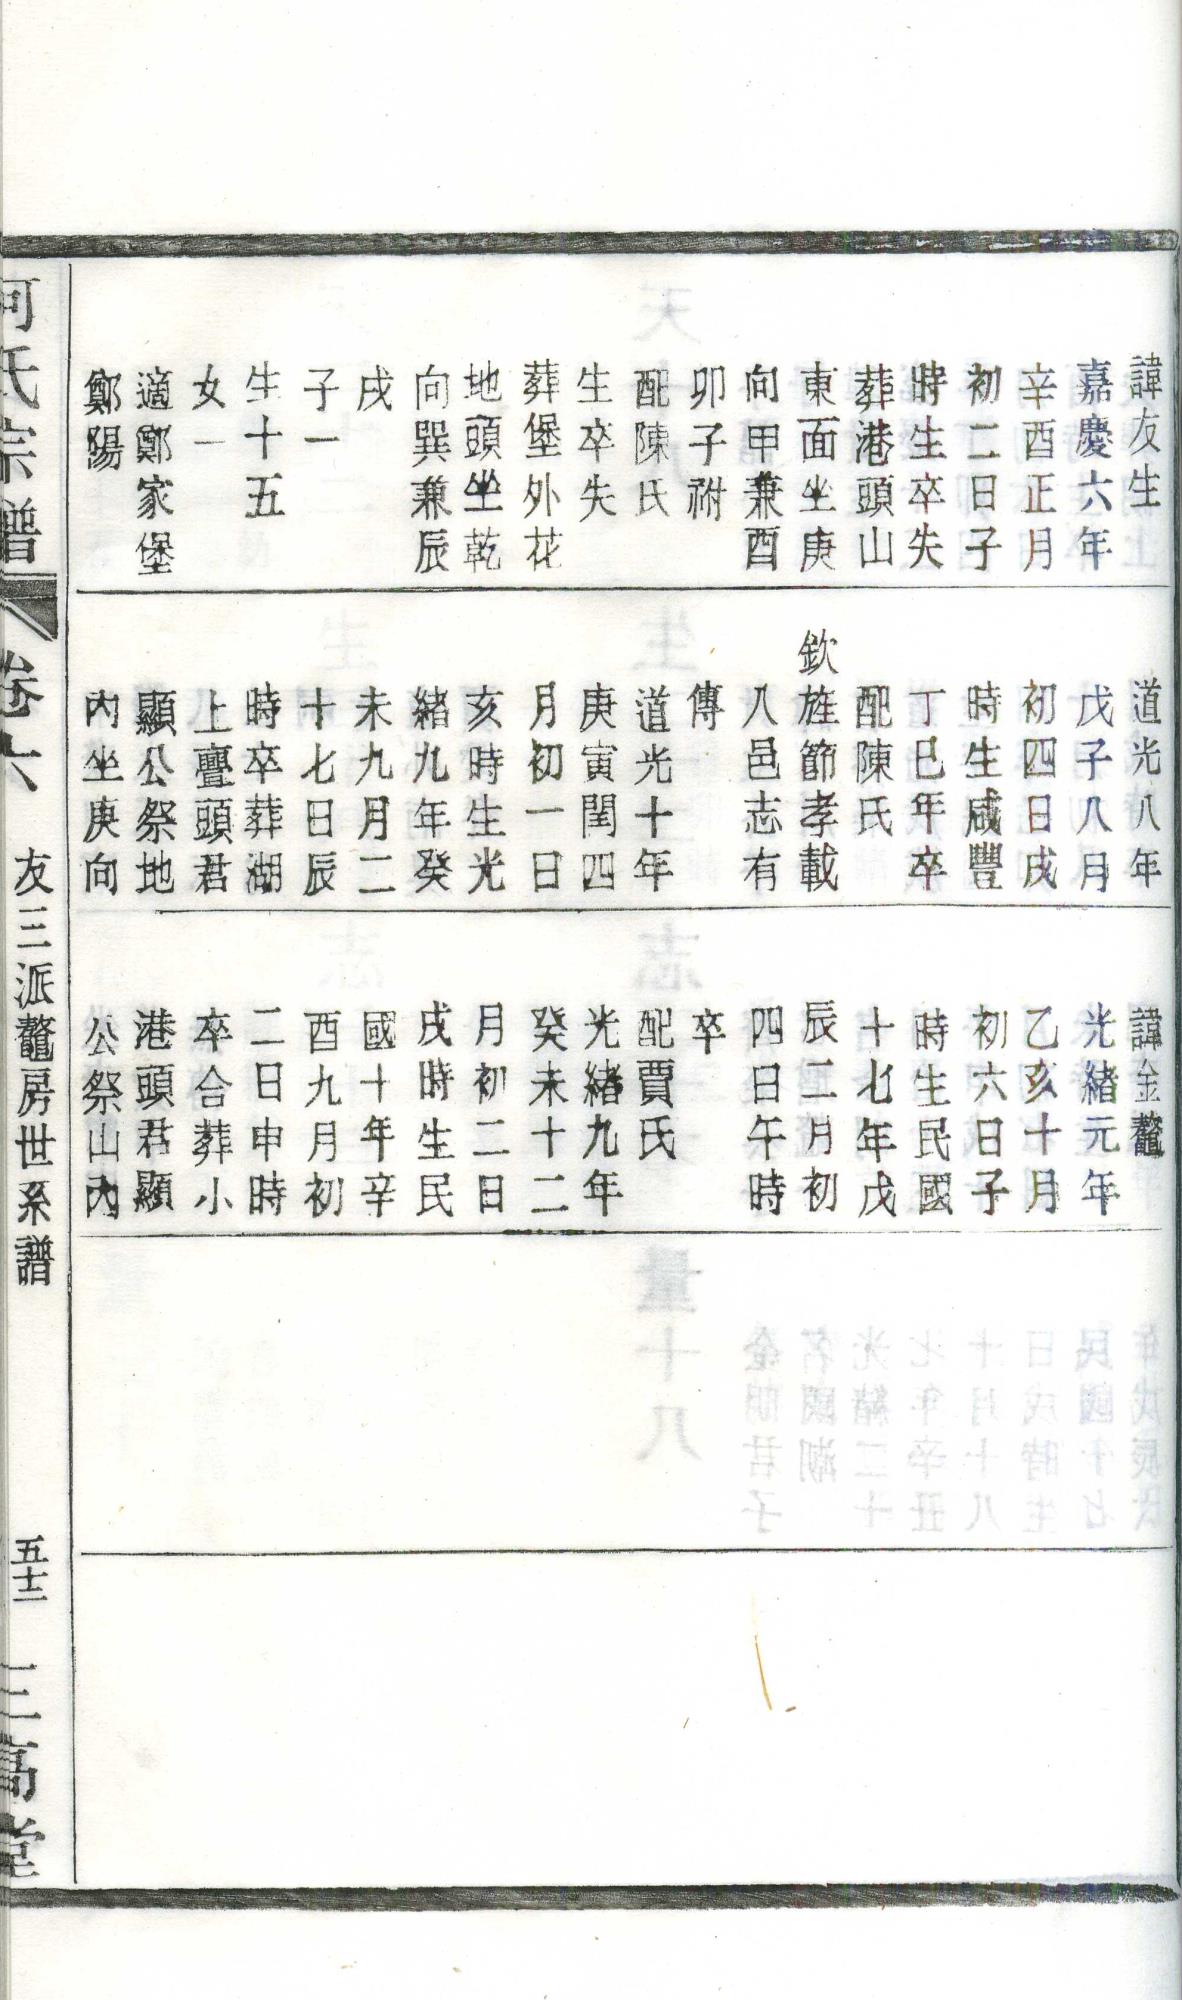 諱友生
嘉慶六年
辛酉正月
初二日子
時生卒失
葬港頭山
東面坐庚
向甲兼酉
卯子祔
配陳氏
生卒失
葬堡外花
地頭坐乾
向巽兼辰
戌
子一
生十五
女一
適鄭家堡
鄭陽
道光八年
戊子八月
初四日戌
時生咸豐
丁巳年卒
配陳氏
欽旌節孝載
八邑志有
傳
道光十年
庚寅閏四
月初一日
亥時生光
緒九年癸
未九月二
十七日辰
時卒葬湖
上亹頭君
顯公祭地
內坐庚向
諱金鼇
光緒元年
乙亥十月
初六日子
時生民國
十七年戊
辰二月初
四日午時
卒
配賈氏
光緒九年
癸未十二
月初二日
戌時生民
國十年辛
酉九月初
二日申時
卒合葬小
港頭君顯
公祭山內
何氏宗譜
卷六
友三派鼇房世系譜
五十二
三高堂